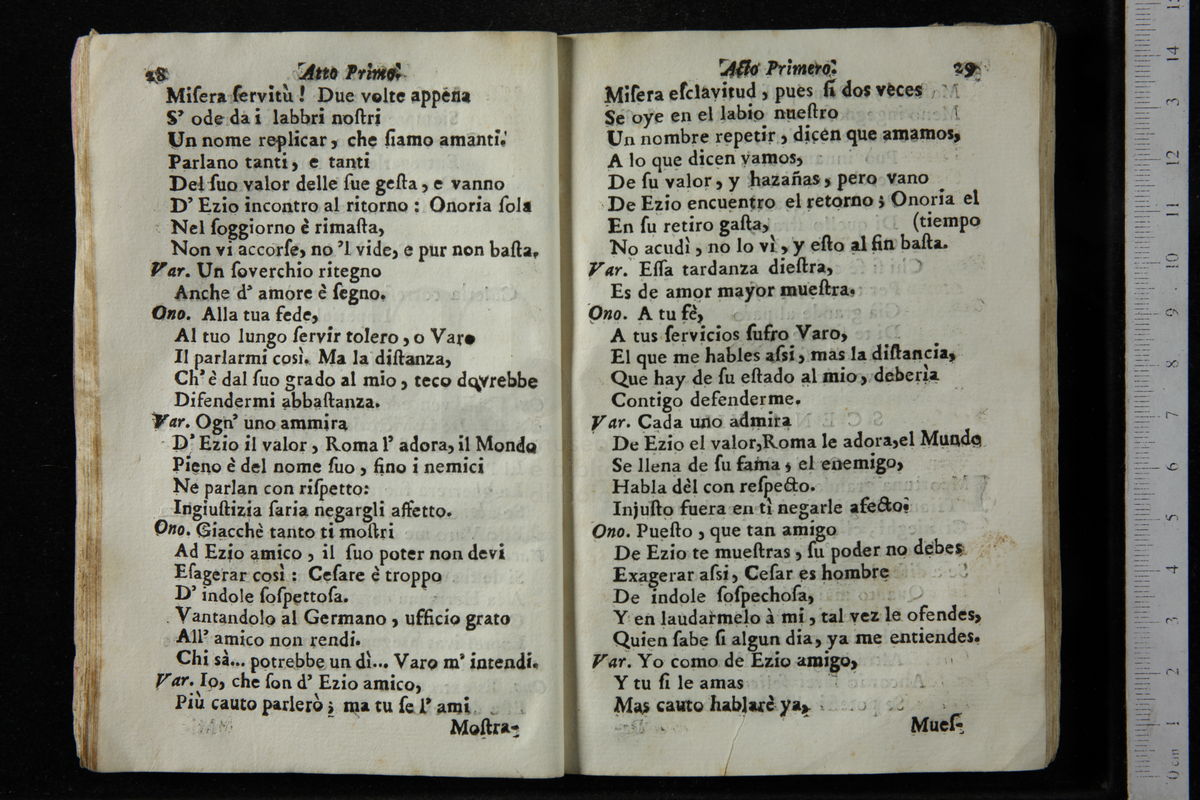 28 Atto Primo.
Miſera ſervitù! Due volte appena
S' ode da i labbri noſtri
Un nome replicar, che ſiamo amanti.
Parlano tanti, e tanti
Del ſuo valor delle ſue geſta, e vanno
D' Ezio incontro al ritorno: Onoria ſola
Nel ſoggiorno è rimaſta,
Non vi accorſe, no 'l vide, e pur non baſta.
Var. Un ſoverchio ritegno
Anche d' amore è ſegno.
Ono. Alla tua fede,
Al tuo lungo ſervir tolero, o Varo
Il parlarmi così. Ma la diſtanza,
Ch' è dal ſuo grado al mio, teco dovrebbe
Difendermi abbaſtanza.
Var. Ogn' uno ammira
D' Ezio il valor, Roma l' adora, il Mondo
Pieno è del nome ſuo, fino i nemici
Ne parlan con riſpetto:
Ingiuſtizia ſaria negargli affetto.
Ono. Giacchè tanto ti moſtri
Ad Ezio amico, il ſuo poter non devi
Eſagerar così: Ceſare è troppo
D' indole ſoſpettoſa.
Vantandolo al Germano, ufficio grato
All' amico non rendi.
Chi sà... potrebbe un dì... Varo m' intendi.
Var. Io, che ſon d' Ezio amico,
Più cauto parlerò; ma tu ſe l' ami
Moſtra-
Acto Primero. 29
Miſera eſclavitud, pues ſi dos veces
Se oye en el labio nueſtro
Un nombre repetir, dicen que amamos,
A lo que dicen vamos,
De ſu valor, y hazañas, pero vano
De Ezio encuentro el retorno; Onoria el
En ſu retiro gaſta, (tiempo
No acudì, no lo vì, y eſto al fin baſta.
Var. Eſſa tardanza dieſtra,
Es de amor mayor mueſtra.
Ono. A tu fè,
A tus ſervicios ſufro Varo,
El que me hables aſsi, mas la diſtancia,
Que hay de ſu eſtado al mio, deberìa
Contigo defenderme.
Var. Cada uno admira
De Ezio el valor, Roma le adora, el Mundo
Se llena de ſu fama, el enemigo,
Habla dèl con reſpecto.
Injuſto fuera en tì negarle afecto.
Ono. Pueſto, que tan amigo
De Ezio te mueſtras, ſu poder no debes
Exagerar aſsi, Ceſar es hombre
De indole ſoſpechoſa,
Y en laudarmelo à mi, tal vez le ofendes,
Quien ſabe ſi algun dia, ya me entiendes.
Var. Yo como de Ezio amigo,
Y tu ſi le amas
Mas cauto hablarè ya,
Mueſ-